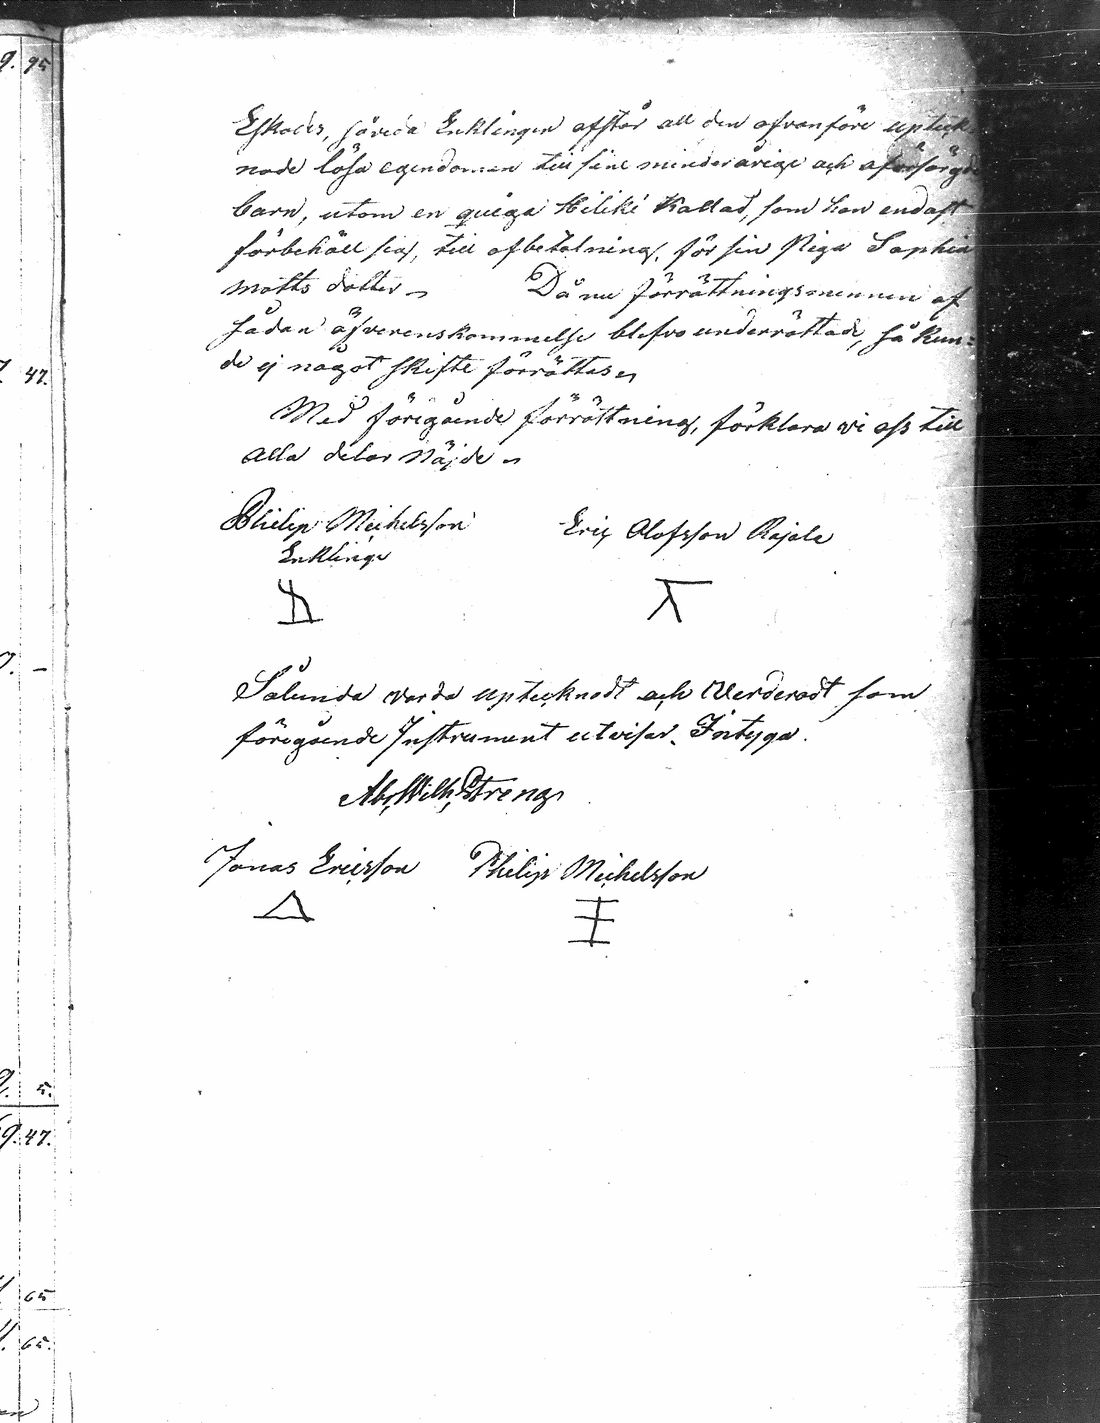 9. 95
Eskades, såvida Enklingen afstår all den ofvanföre uptek-
nade lösa egendomen till sine minderårige och oförsörgde
barn, utom en quiga Hiliki Kallad, som han endast
förbehåll sig, till afbetalning, för sin Piga Sophia
Matts dotter Då nu förrättningsmännen af
sådan öfverenskommelse blefvo underrättade, så kun-
47. de ej något skifte förrättas
Med förigående förrättning, förklara vi oss till
alla delar Nöjde
Philip Michelsson Eric Olofsson Rajala
Enklinge
Sålunda varda uptecknadt och Värderadt som
förigående Instrument utvisar, Intyga.
Abr. Wilh. Streng
Jonas Ericsson Philip Michelsson
5.
9. 47.
65
65.